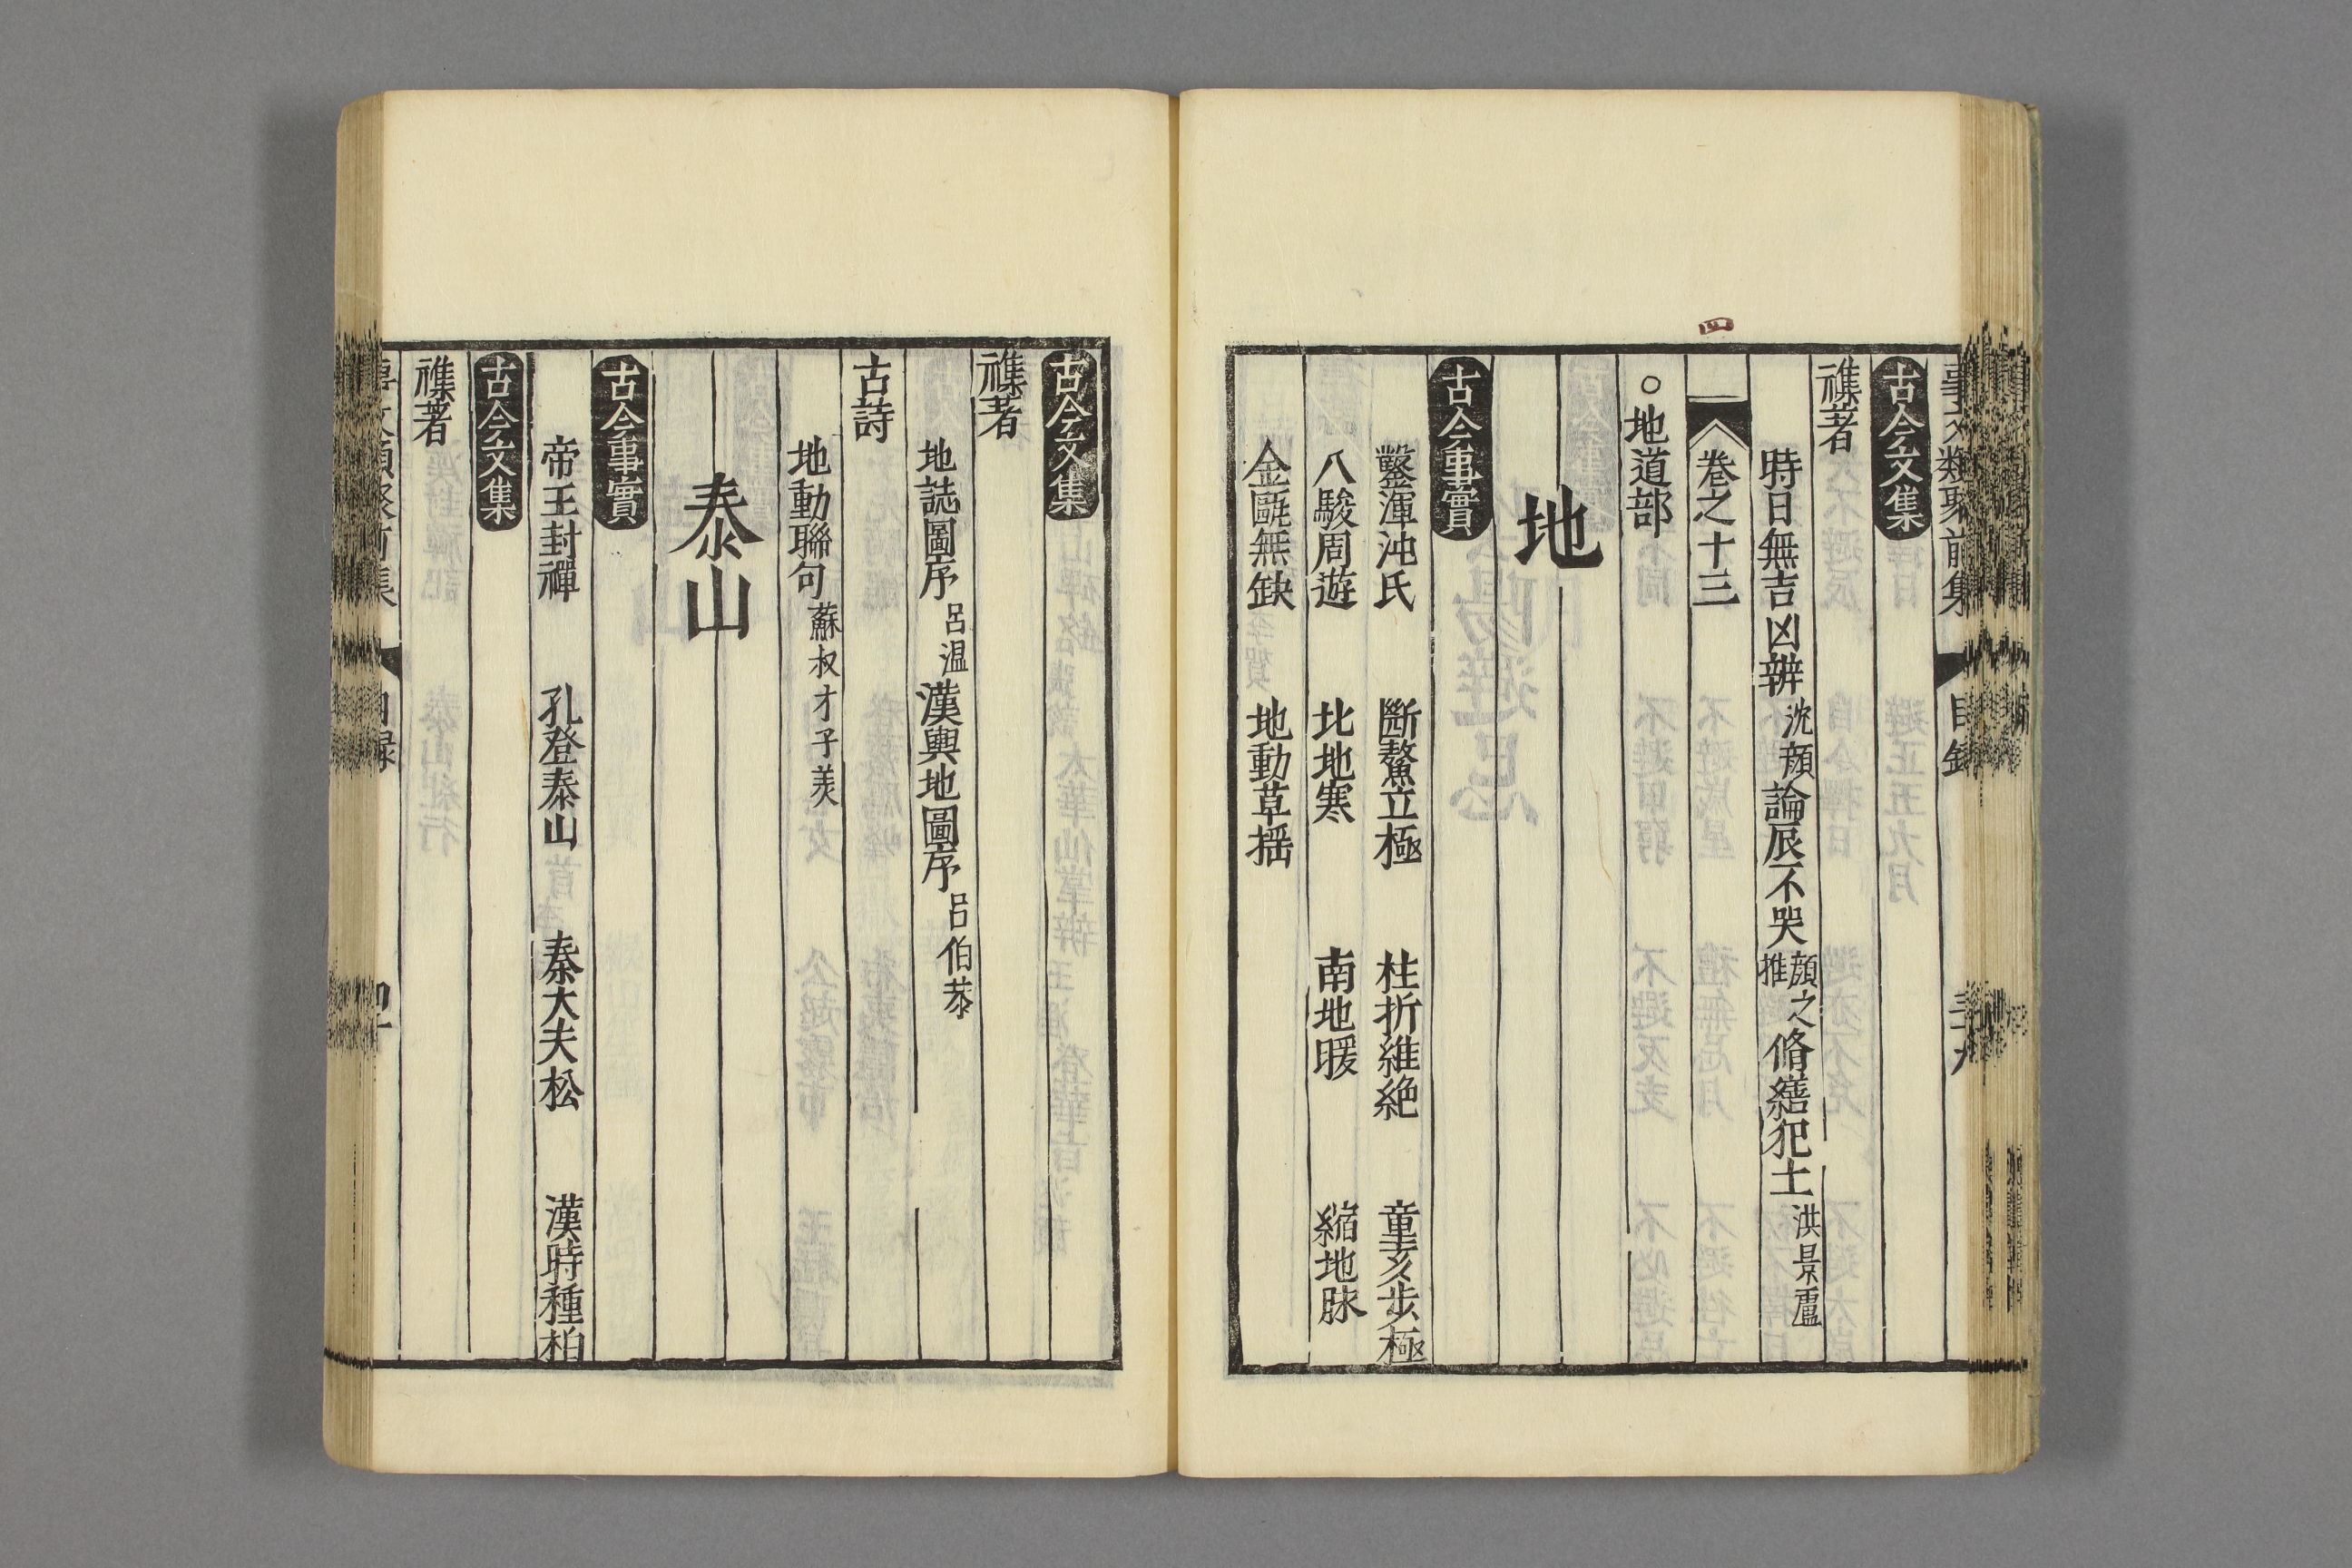 古今文集
襍著
時日無吉凶辨 沈顔 論辰不哭 顔之推 脩繕犯土 洪景盧
卷之十三
○地道部
地
古今事實
鑿渾沌氏 斷鰲立極 柱折維絶 童亥步極
八駿周遊 北地寒 南地暖 縮地脉
金甌無缺 地動草揺
四
古今文集
襍著
地誌圖序 呂温 漢輿地圖序 呂伯恭
古詩
地動聯句 蘇叔才子美
泰山
古今事實
帝王封禪 孔登泰山 秦大夫松 漢時種柏
古今文集
襍著